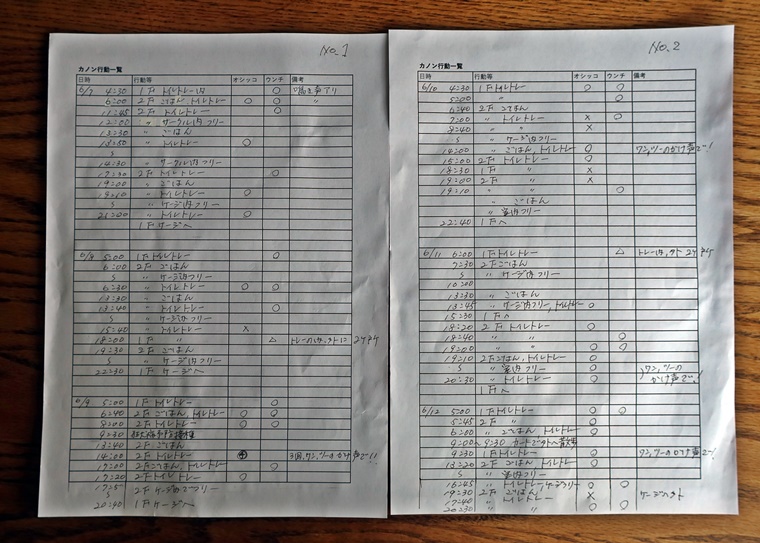 No.1
カノン行動一覧
日時 行動等 オシッコ ウンチ 備考
6/7 4:30 1F トイレトレー内 ○
6:00 2F ごはん、トイレトレー ○ ○ 〃
11:45 2F トイレトレー ○
12:00 〃 サークル内フリー
13:30 〃 ごはん
13:50 〃 トイレトレー ○
S
14:30 〃 サークル内フリー
17:30 2F トイレトレー ○
19:00 〃 ごはん
19:10 〃 トイレトレー ○
S 〃 ケージ内フリー
21:00 〃 トイレトレー ○
1F ケージへ
6/8 5:00 1F トイレトレー ○
6:00 2F ごはん
S 〃 ケージ内フリー
6:30 〃 トイレトレー ○ ○
13:30 〃 ごはん
13:40 〃 トイレトレー ○
S 〃 ケージ内フリー
15:40 〃 トイレトレー ×
18:00 1F 〃 △ トレーの内、外に 2ヶ所
19:30 2F ごはん
S 〃 ケージ内フリー
22:30 1F ケージへ
6/9 5:00 1F トイレトレー ○
6:40 2F ごはん、トイレトレー ○ ○
8:00 2F トイレトレー ○ ○
9:30
13:40 2F ごはん
14:00 2F トイレトレー 3回、ワン,ツーのかけ声で!!
17:00 2F ごはん、トイレトレー ○
17:20 2F トイレトレー ○
2F ケージ内でフリー
20:40 1F ケージへ
No.2
カノン行動一覧
日時 行動等 オシッコ ウンチ 備考
6/10 4:30 1F トイレトレー ○ ○
5:00 〃 ○
6:40 2F ごはん
7:00 〃 トイレトレー × ○
8:40 〃 〃 ×
S 〃 ケージ内フリー
14:00 〃 ごはん、トイレトレー ○ ワン,ツーのかけ声で!
16:00 2F トイレトレー ○
18:30 1F 〃 ×
19:00 2F 〃 ×
19:10 〃 〃 ○
〃 ごはん
〃 室内フリー
22:40 1F へ
6/11 6:00 1F トイレトレー △ トレー内、外 2ヶ所
9:30 2F ごはん
S 〃 ケージ内フリー
10:00
13:30 〃 ごはん
13:45 〃 ケージ内フリー、トイレトレー ○
15:30 1F へ
18:20 2F トイレトレー ○
18:40 〃 〃 ○
19:00 〃 〃 ○ ○
19:10 2F ごはん、トイレトレー ○
S 〃 室内フリー ○ ワン,ツーの
20:30 〃 トイレトレー ○ かけ声で!
1F へ
6/12 5:00 1F トイレトレー ○ ○
5:45 2F 〃 ○
6:00 〃 ごはん、トイレトレー ○
9:00へ 9:30 カートで外へ散歩
9:30 1F トイレトレー ○ ワン,ツーのかけ声で!
13:20 2F ごはん、トイレトレー ○
S 〃 室内フリー
16:45 〃 トイレトレー、ケージフリー ○ ○
19:30 2F ごはん × ケージの外
〃 トイレトレー ○
20:30 〃 〃 ○ ○